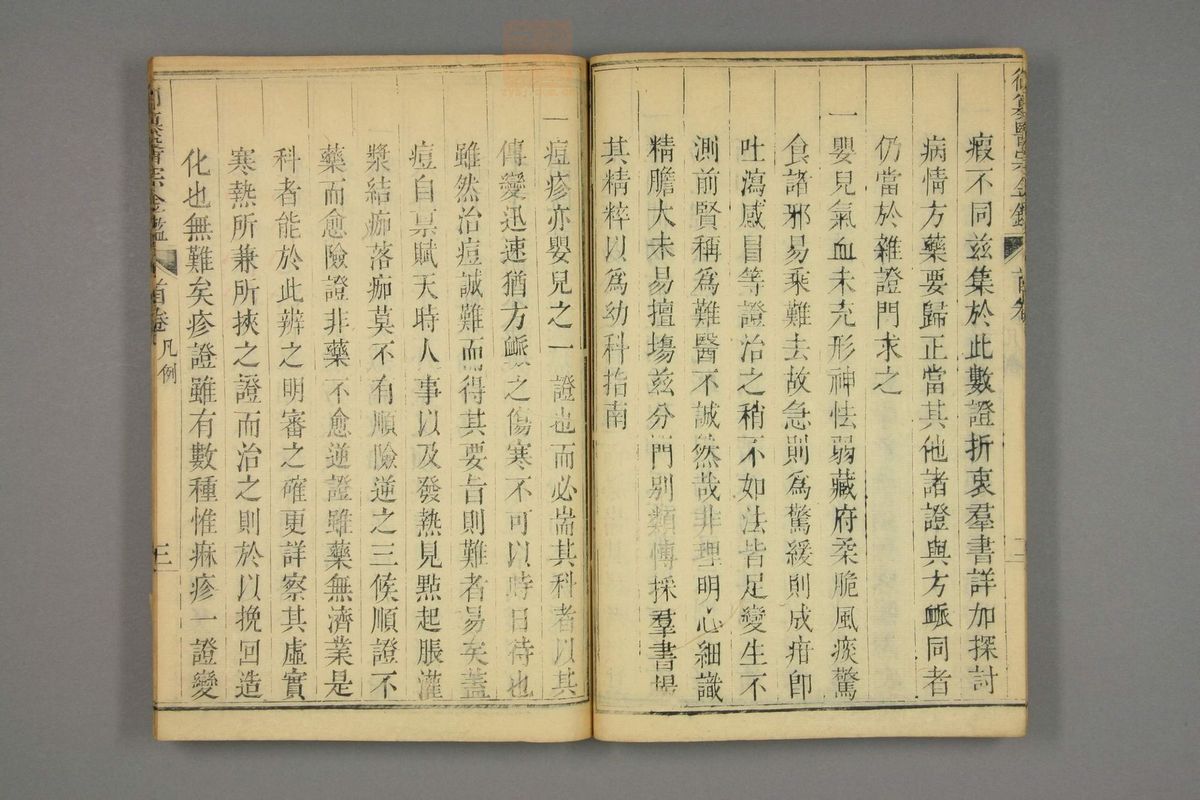 御纂醫宗金鑑
首卷
二
瘕不同兹集於此數證折衷羣書詳加探討
病情方藥要歸正當其他諸證與方𧖴同者
仍當於雜證門求之
一嬰兒氣血未充形神怯弱藏府柔脆風痰驚
食諸邪易乘難去故急則爲驚緩則成疳卽
吐瀉感冒等證治之稍不如法皆足變生不
測前賢稱爲難醫不誠然哉非理明心細識
精膽大未易擅塲兹分門別類博採羣書揚
其精粹以爲幼科指南
一痘疹亦嬰兒之一證也而必耑其科者以其
傳變迅速猶方𧖴之傷寒不可以時日待也
雖然治痘誠難而得其要旨則難者易矣葢
痘自禀賦天時人事以及發熱見點起脹灌
漿結痂落痂莫不有順險逆之三候順證不
藥而愈險證非藥不愈逆證雖藥無濟業是
科者能於此辨之明審之確更詳察其虛實
寒熱所兼所挾之證而治之則於以挽回造
化也無難矣疹證雖有數種惟痲疹一證變
御纂醫宗金鑑
首卷 凡例
三